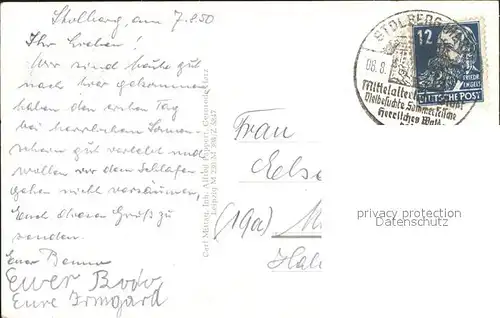 Stolberg, am 7.8.50
Ihr Lieben!
Wir sind heute gut
nach hier gekommen
haben den ersten Tag
bei herrlichem Sonnen-
schein gut verlebt und
wollen vor dem Schlafen-
gehen nicht versäumen,
Euch diesen Gruß zu
senden.
Euer Benno
Euer Bodo
Eure Irmgard
Carl Manog, Inh. Alfred Ruppert,
Leipzig M 220
Frau
Else
(19a)
STOLBERG
08.8.
Mittelalterliche
Vielbesuchte Sommerfrische
Herrliches Wald-
12
FRIEDR.
ENGELS
DEUTSCHE POST
privacy protection
Datenschutz